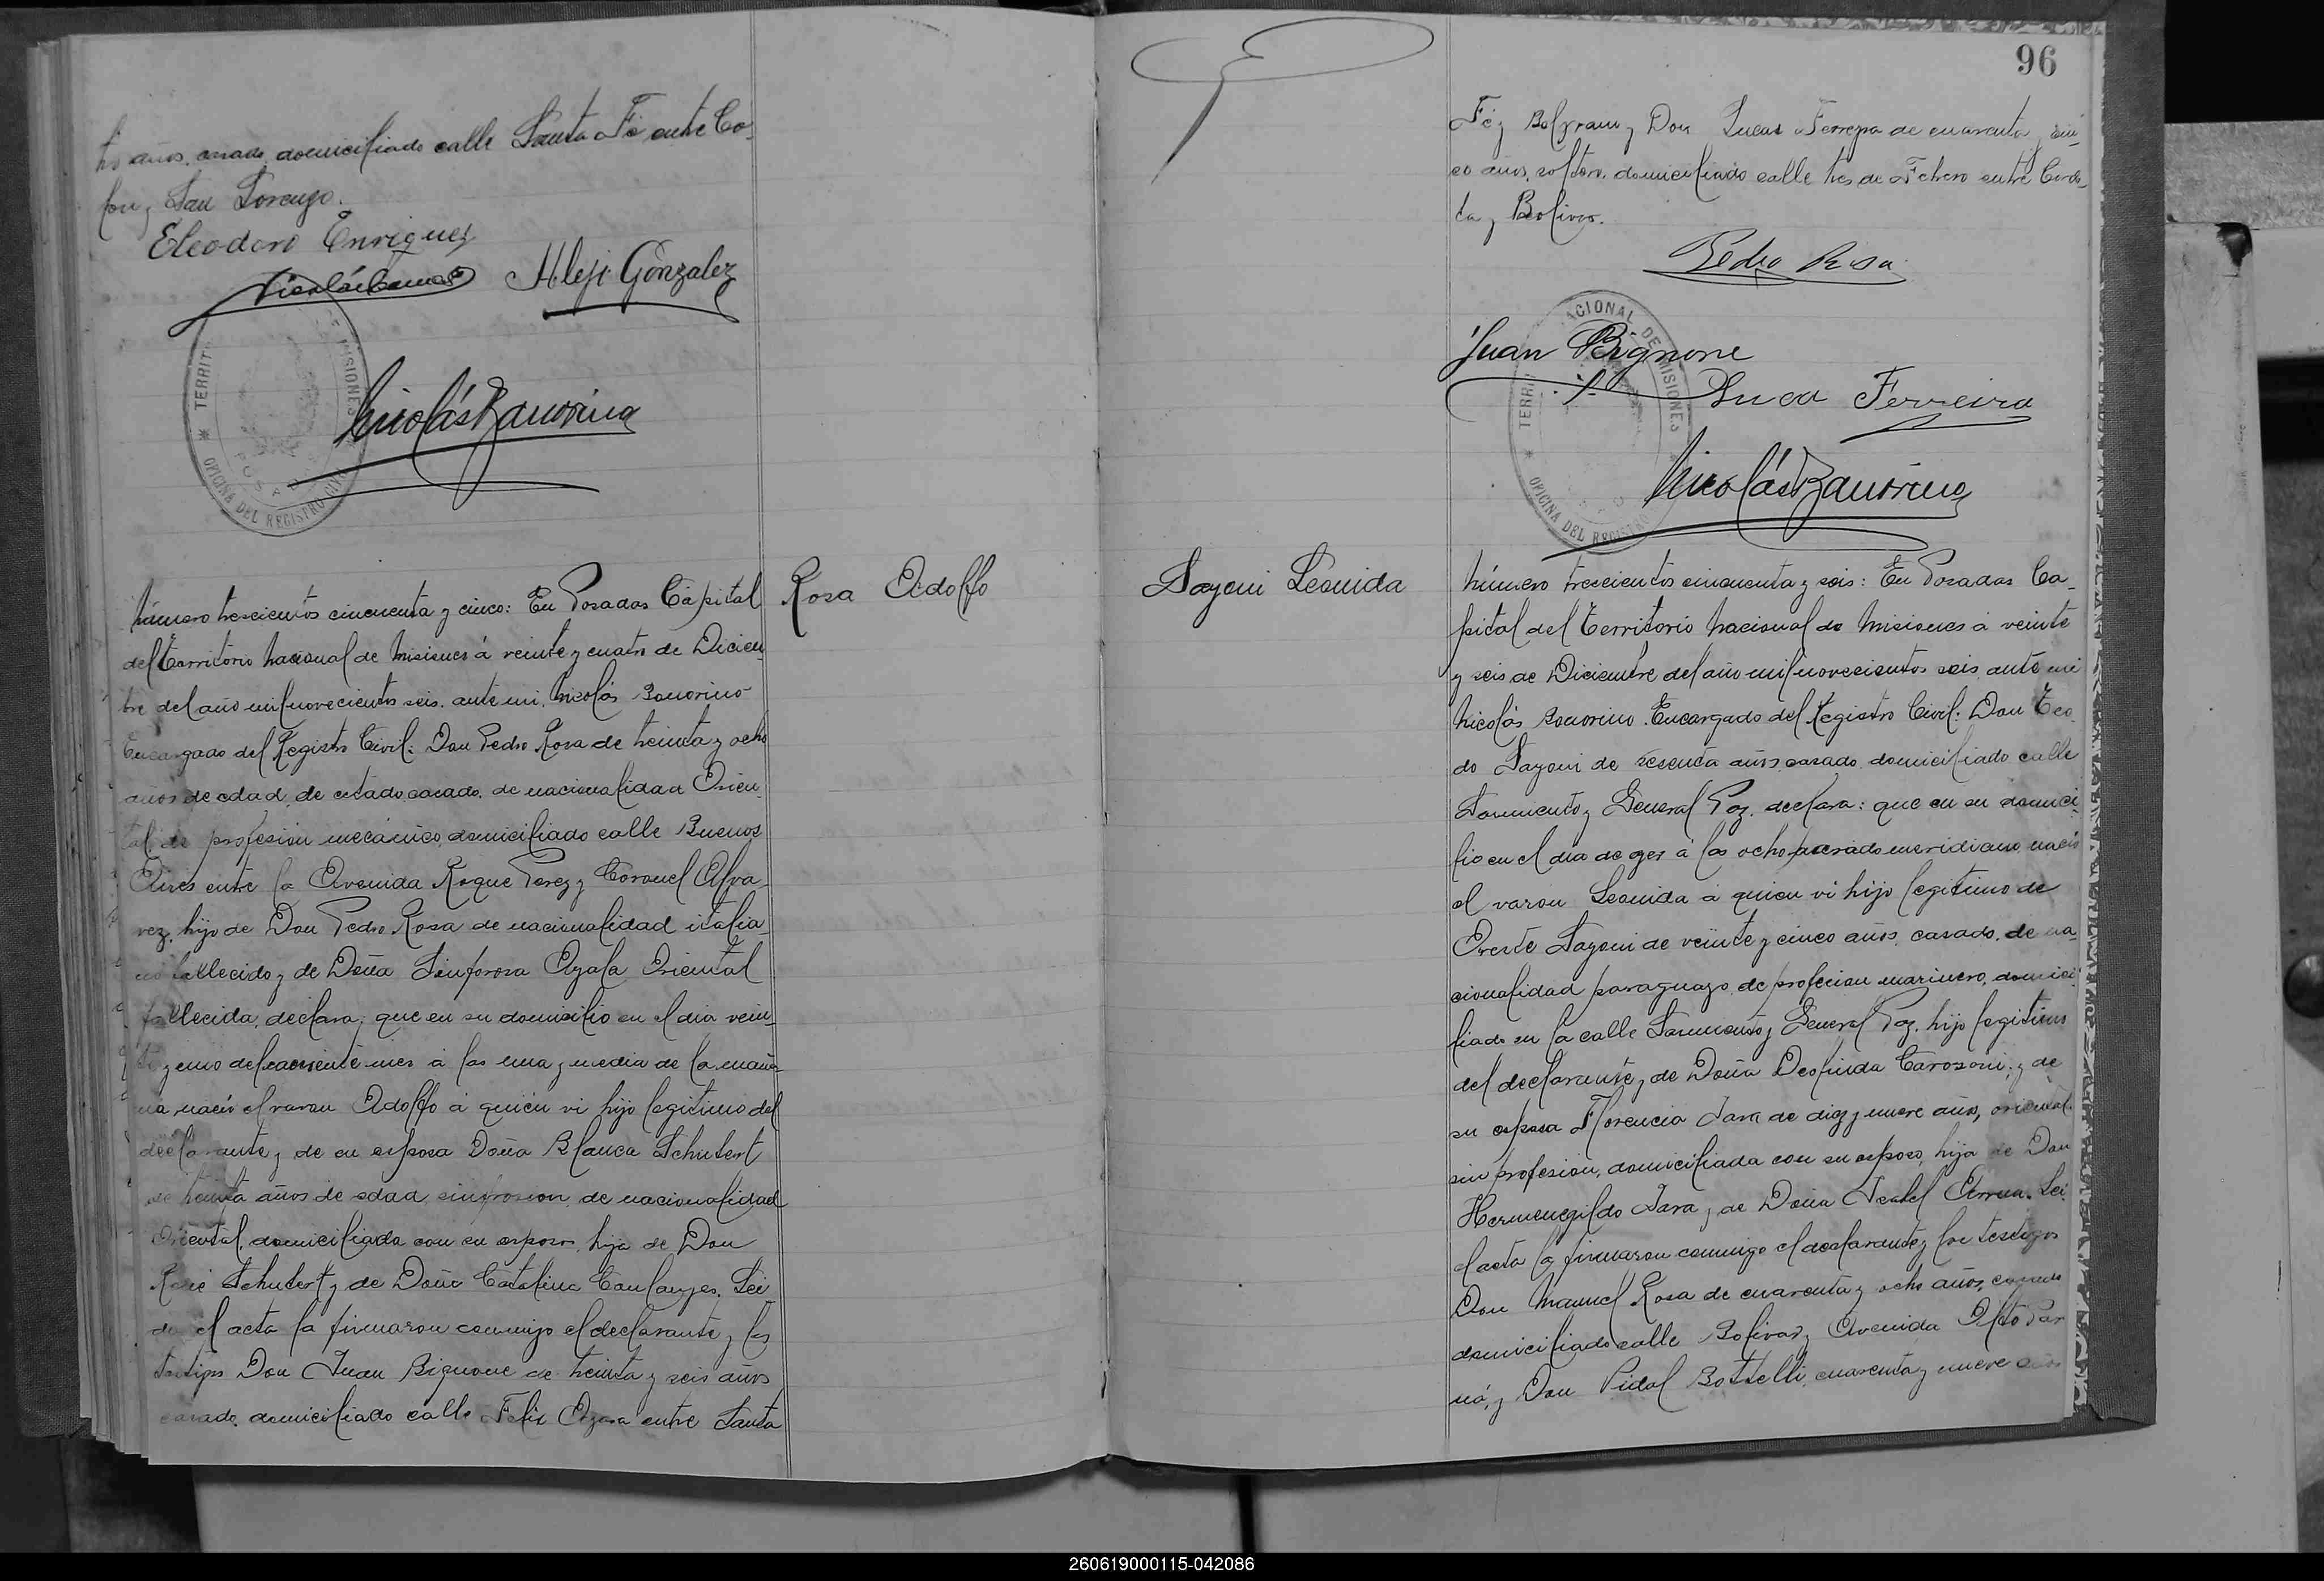 tro años, casado, domiciliado calle Santa Fé entre Co-
lon y San Lorenzo.
Eleodoro Enriquez
Alej. Gonzalez
TERRIT DE MISIONES
OFICINA DEL REGISTRO CIVIL
Nicolás Bonorino
Número trescientos cincuenta y cinco: En Posadas Capital
del Territorio Nacional de Misiones á veinte y cuatro de Diciem-
bre del año mil novecientos seis, ante mi, Nicolás Bonorino
Encargado del Registro Civil: Don Pedro Rosa de treinta y ocho
años de edad, de estado casado, de nacionalidad Orien-
tal de profesión mecánico, domiciliado calle Buenos
Aires entre la Avenida Roque Perez y Coronel Alva-
rez, hijo de Don Pedro Rosa de nacionalidad italia-
no fallecido y de Doña Sinforosa Ayala Oriental
fallecida, declara; que en su domicilio en el dia vein-
te y uno del corriente mes á las una y media de la maña-
na, nació el varon Adolfo á quién vi hijo legitimo del
declarante y de su esposa Doña Blanca Schubert
de treinta años de edad, sin profesion, de nacionalidad
Oriental, domiciliada con su esposo, hija de Don
Schubert y de Doña Catalina Lei-
da el acta la firmaron conmigo el declarante y los
testigos Don Juan Bignone de treinta y seis años
casado, domiciliado calle Felix Azara entre Santa
Rosa Adolfo
96
Fé y Belgrano y Don Lucas Ferreyra de cuarenta y cin-
co años, soltero, domiciliado calle tres de Febrero entre Cordo-
ba y Bolivar.
Pedro Rosa
Juan Bignone
Luca Ferreira
TERRI NACIONAL DE MISIONES
OFICINA DEL REGISTRO
Nicolás Bonorino
Sayoni Leonida
Número trescientos cincuenta y seis: En Posadas Ca-
pital del Territorio Nacional de Misiones á veinte
y seis de Diciembre del año mil novecientos seis, ante mi
Nicolás Bonorino. Encargado del Registro Civil: Don Teo
do Sayoni de sesenta años, casado, domiciliado calle
Sarmiento y General Paz, declara: que en su domici-
lio en el dia de ayer á las ocho pasado meridiano, nació
el varon Leonida á quien vi hijo legitimo de
Oreste Sayoni de veinte y cinco años, casado, de na-
cionalidad paraguayo, de profecion marinero, domici-
liado en la calle Sarmiento y General Paz, hijo legitimo
del declarante y de Doña Deolinda Carosoni; y de
su esposa Florencia Jara de diez y nueve años, oriental
sin profesión, domiciliada con su esposo, hija de Don
Hermenegildo Jara y de Doña Isabel Arrua. Lei-
el acta la firmaron conmigo el declarante y los testigos
Don Manuel Rosa de cuarenta y ocho años, casado
domiciliado calle Bolivar y Avenida Alto Par
ná, y Don Vidal Bottelli, cuarenta y nueve años
260619000115-042086